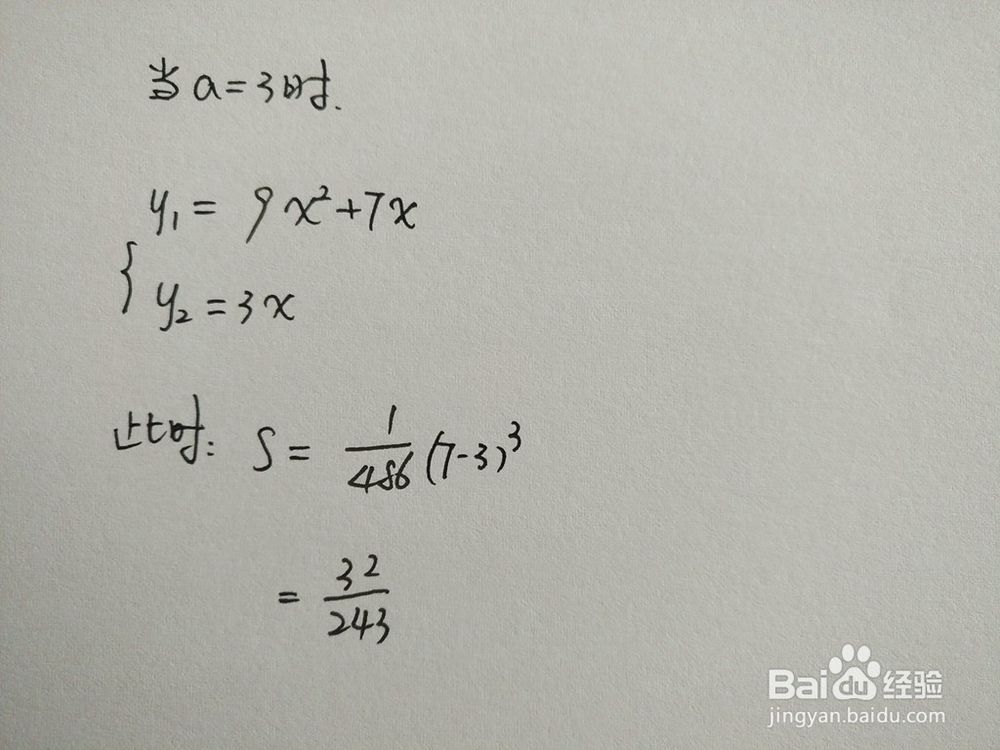 当a=3时.
y₁= 9x²+7x
{
y₂=3x
此时: S= 1/486 (7-3)³
= 32/243
Baidu经验
jingyan.baidu.com